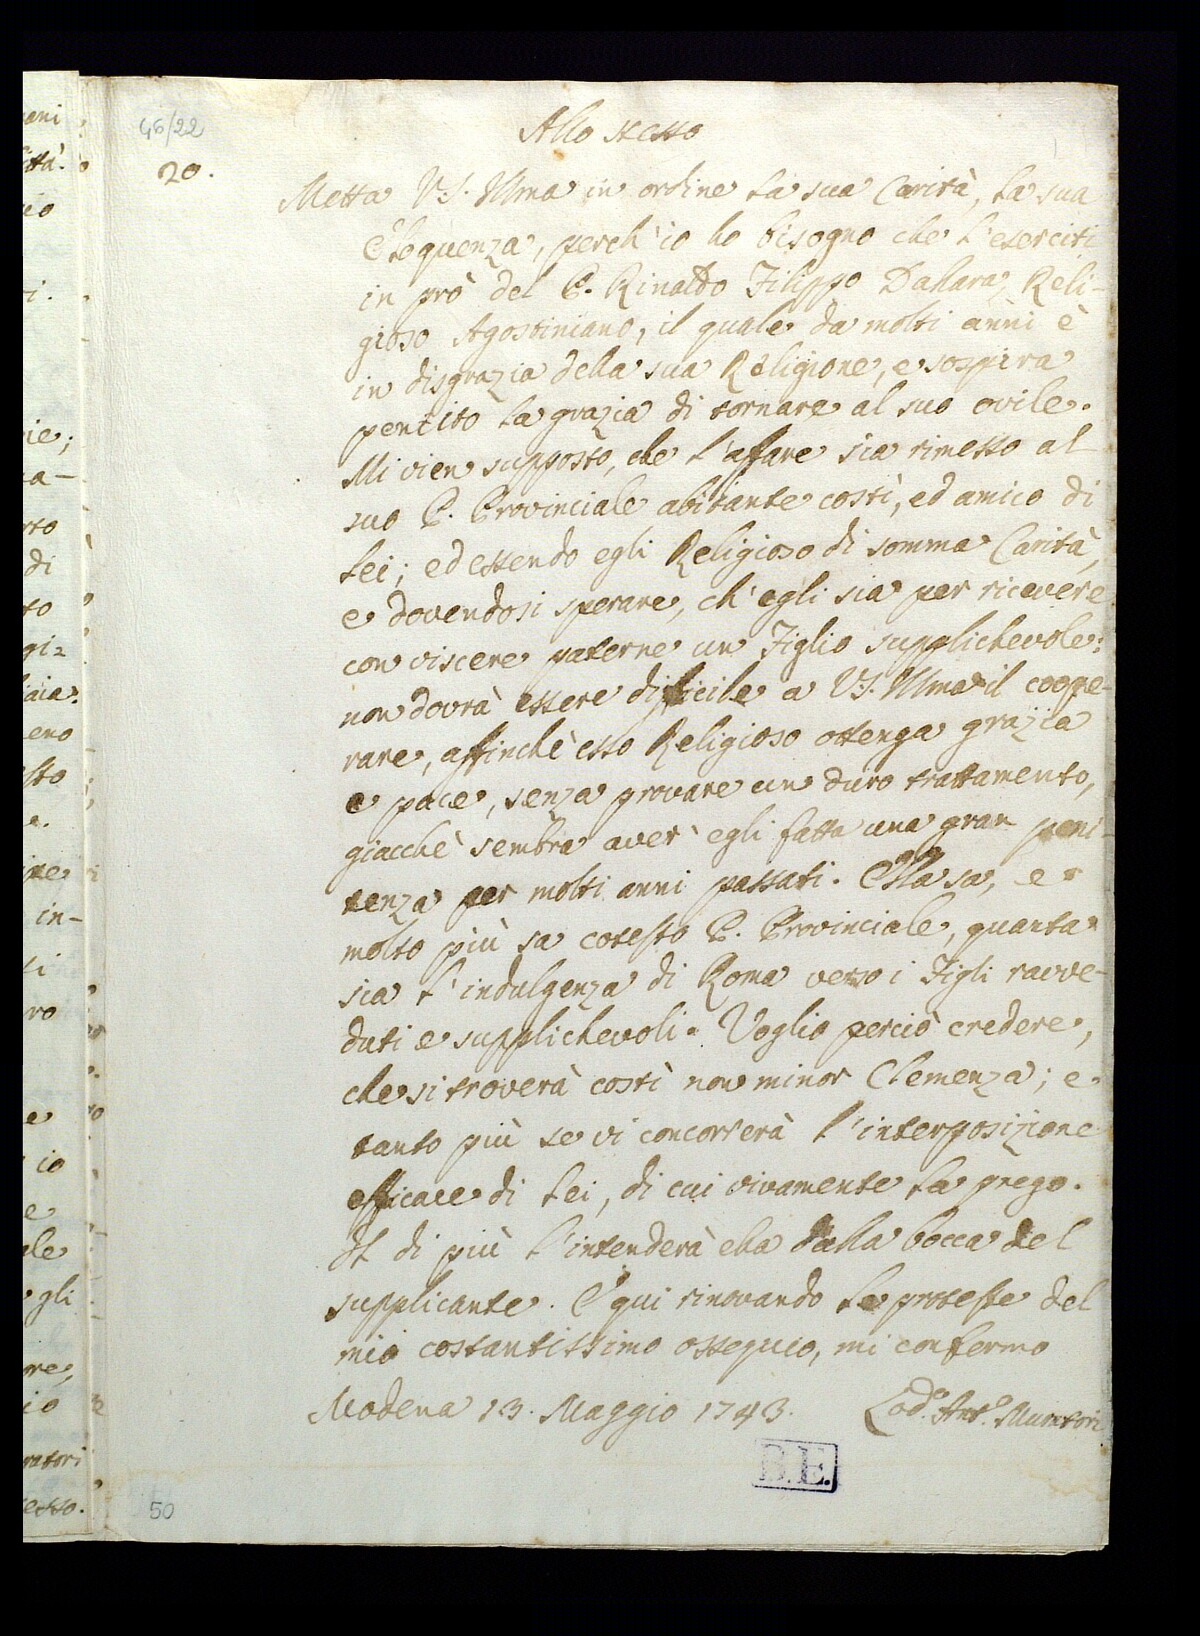 46/22
Allo stesso
20.
Metta V.S. Illma in ordine la sua Carità, la sua
Eloquenza, perch'io ho bisogno che l'eserciti
in prò del P. Rinaldo Filippo Dallara Reli-
gioso Agostiniano, il quale da molti anni è
in disgrazia della sua Religione, e sospira
pentito la grazia di tornare al suo ovile.
Mi vien supposto, che l'affare sia rimesso al
suo P. Provinciale abitante costì, ed amico di
Lei; ed essendo egli Religioso di somma Carità,
e dovendosi sperare, ch'egli sia per ricevere
con viscere paterne un Figlio supplichevole:
non dovrà essere difficile a V.S. Illma il coope-
rare, affinchè esso Religioso ottenga grazia
e pace, senza provare un duro trattamento,
giacchè sembra aver egli fatta una gran peni-
tenza per molti anni passati. Ella sa, e
molto più sa cotesto P. Provinciale, quanta
sia l'indulgenza di Roma verso i Figli ravve-
duti e supplichevoli. Voglio perciò credere,
che si troverà costì non minor Clemenza; e
tanto più se vi concorrerà l'interposizione
efficace di Lei, di cui vivamente la prego.
Il di più l'intenderà ella dalla bocca del
supplicante. E qui rinovando le proteste del
mio costantissimo ossequio, mi confermo
Modena 13. Maggio 1743. Lod.º Ant.º Muratori
B.E.
50